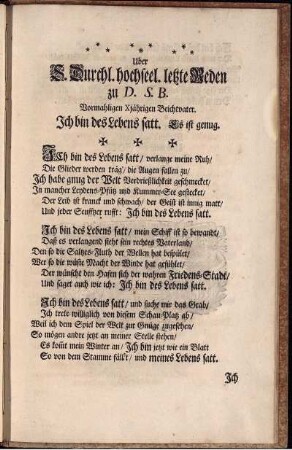 Uber
S. Durchl. hochseel. letzte Reden
zu D. L. B.
Vormahligen Xjährigen Beichtvater.
Ich bin des Lebens satt. Es ist genug.
ICh bin des Lebens satt / verlange meine Ruh /
Die Glieder werden träg / die Augen fallen zu /
Ich habe gnug der Welt Verdrießlichkeit geschmecket /
In mancher Leydens-Pfütz und Kummer-See gestecket /
Der Leib ist kranck und schwach / der Geist ist innig matt /
Und jeder Seuffzer rufft: Ich bin des Lebens satt.
Ich bin des Lebens satt / mein Schiff ist so bewandt /
Daß es verlangend sieht sein rechtes Vaterland /
Den so die Saltzes-Fluth der Wellen hat bespület /
Wer so die wüste Macht der Winde hat gefühlet /
Der wünscht den Hafen sich der wahren Friedens-Stadt /
Und saget auch wie ich: Ich bin des Lebens satt.
Ich bin des Lebens satt / und suche mir das Grab /
Ich trete williglich von diesem Schau-Platz ab /
Weil ich dem Spiel der Welt zur Gnüge zugesehen /
So mögen andre jetzt an meiner Stelle stehen /
Es kom̃t mein Winter an / Ich bin jetzt wie ein Blatt
So von dem Stamme fällt / und meines Lebens satt.
Ich